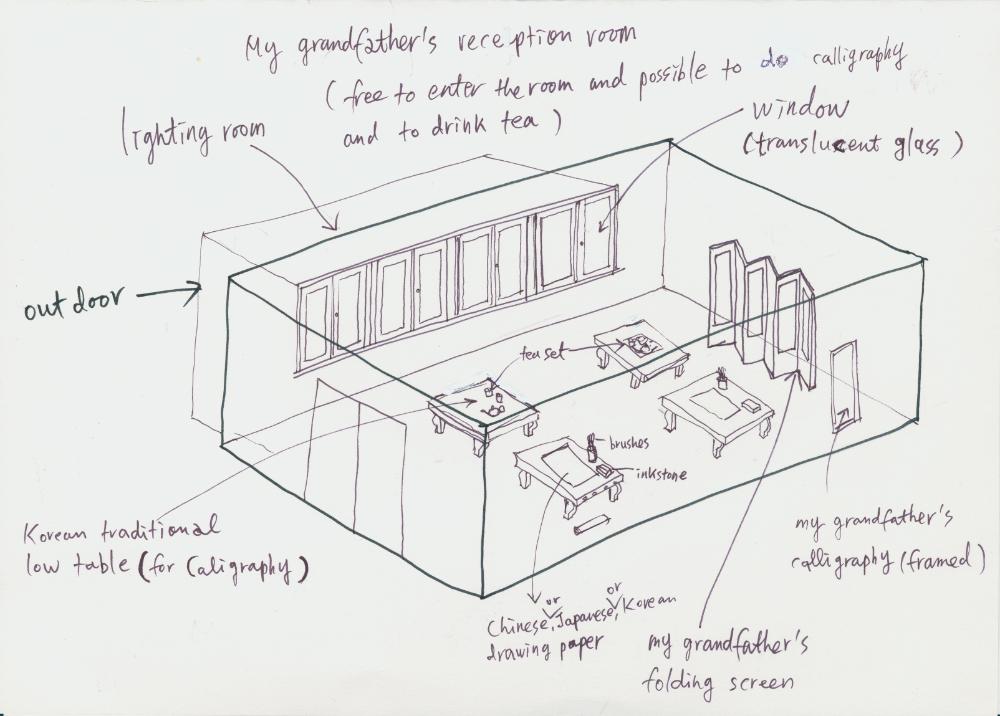 My grandfather's reception room
(free to enter the room and possible to do calligraphy
and to drink tea)
lighting room
window
(translucent glass)
outdoor
tea set
brushes
inkstone
Korean traditional
low table (for Caligraphy)
my grandfather's
calligraphy (framed)
or or
Chinese, Japanese, Korean
drawing paper
my grandfather's
folding screen